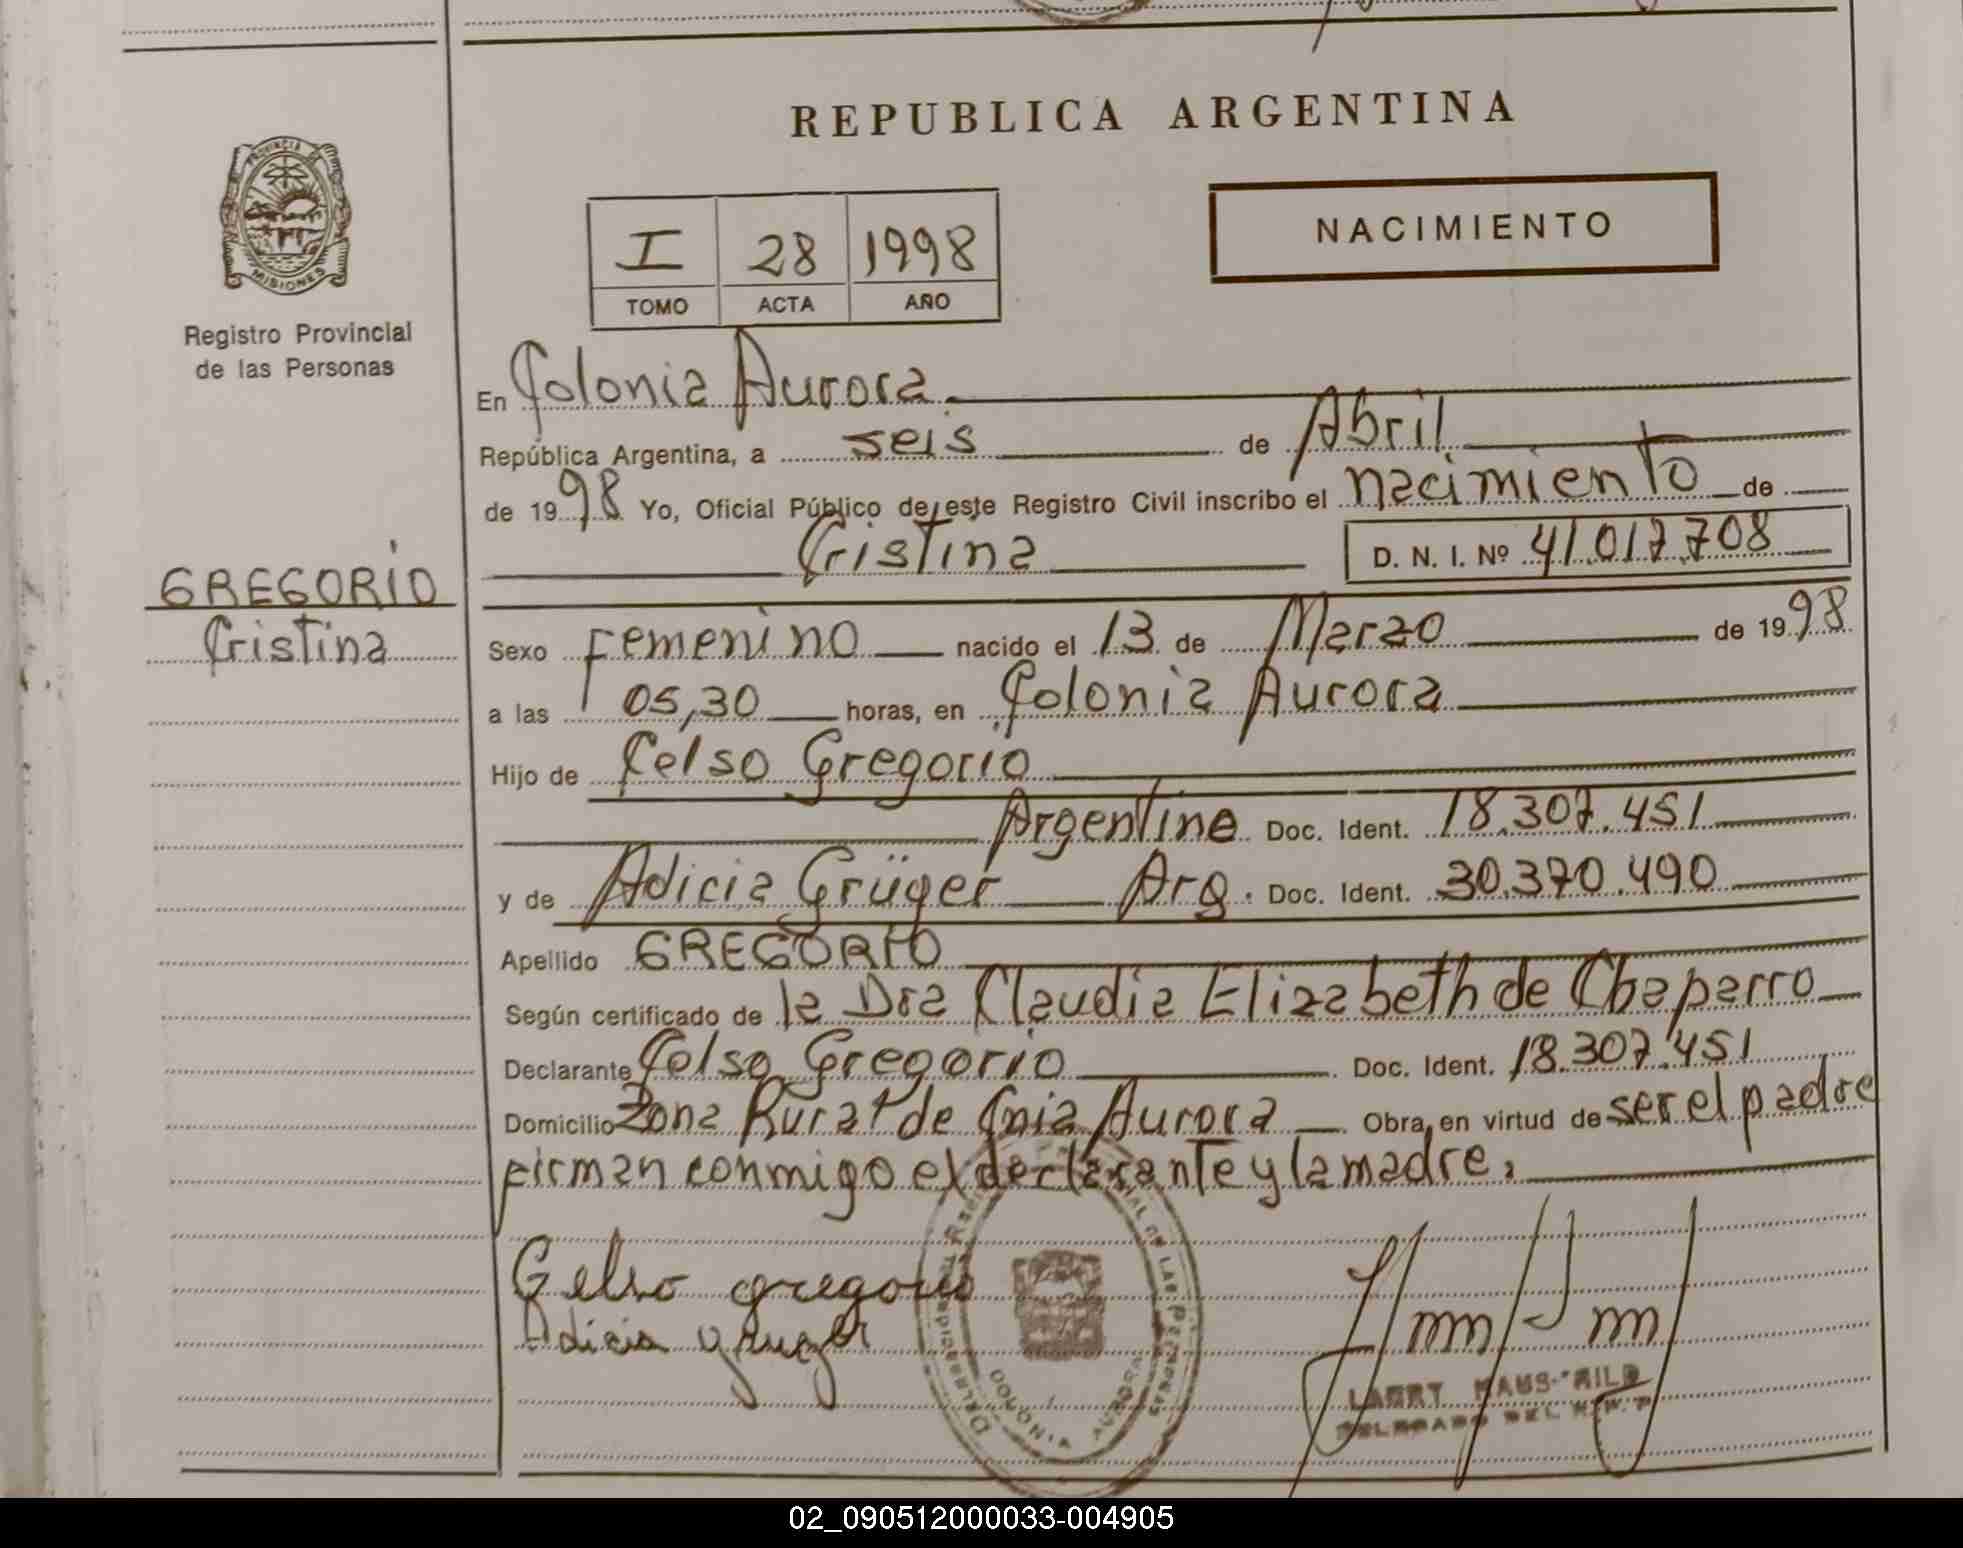 REPUBLICA ARGENTINA
PROVINCIA DE
MISIONES
Registro Provincial
de las Personas
I 28 1998
TOMO ACTA AÑO
NACIMIENTO
En Colonia Aurora
República Argentina, a seis de Abril
de 1998 Yo, Oficial Público de este Registro Civil inscribo el nacimiento de
Cristina D. N. I. Nº 41.017.708
GREGORIO
Cristina
Sexo Femenino nacido el 13 de Marzo de 1998
a las 05,30 horas, en Colonia Aurora
Hijo de Celso Gregorio
Argentina Doc. Ident. 18.307.451
y de Adicia Grüger Arg. Doc. Ident. 30.370.490
Apellido GREGORIO
Según certificado de la Dra Claudia Elizabeth de Chaparro
Declarante Celso Gregorio Doc. Ident. 18.307.451
Domicilio Zona Rural de Cnia Aurora Obra, en virtud de ser el padre
firman conmigo el declarante y la madre.
Celso gregorio
Adicia gruger
COLONIA AURORA
DELEGADO DEL
02_090512000033-004905